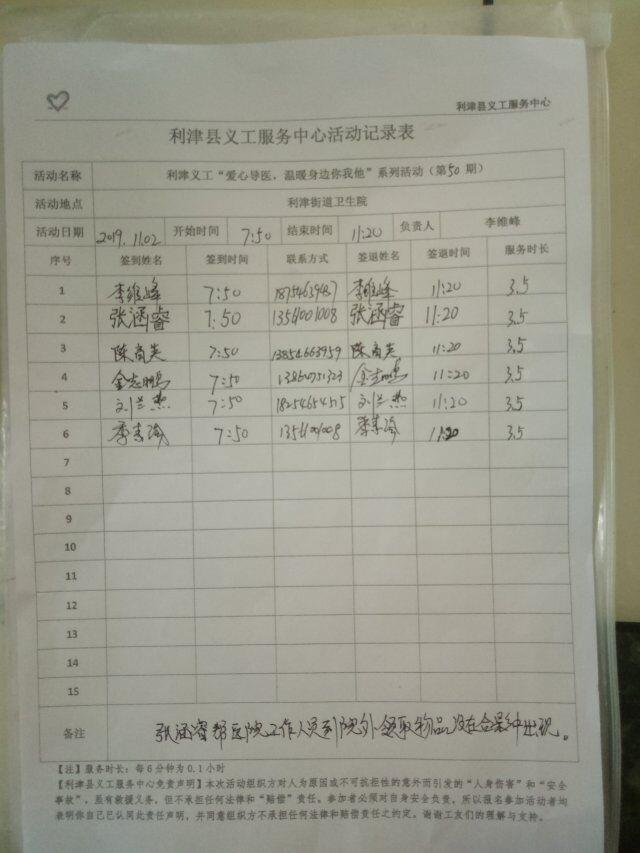 利津县义工服务中心
利津县义工服务中心活动记录表
活动名称 利津义工“爱心导医，温暖身边你我他”系列活动（第50期）
活动地点 利津街道卫生院
活动日期 2019.11.02 开始时间 7:50 结束时间 11:20 负责人 李维峰
序号 签到姓名 签到时间 联系方式 签退姓名 签退时间 服务时长
1 李维峰 7:50 李维峰 11:20 3.5
2 张涵睿 7:50 13541001008 张涵睿 11:20 3.5
3 7:50 13854663959 11:20 3.5
4 金志鹏 7:50 金志鹏 11:20 3.5
5 刘兰杰 7:50 18254654515 刘兰杰 11:20 3.5
6 7:50 11:20 3.5
7
8
9
10
11
12
13
14
15
备注 张涵睿帮医院工作人员到院外领取物品没在合影中出现。
【注】服务时长：每6分钟为0.1小时
【利津县义工服务中心免责声明】本次活动组织方对人为原因或不可抗拒性的意外而引发的“人身伤害”和“安全
事故”，虽有救援义务，但不承担任何法律和“赔偿”责任。参加者必须对自身安全负责，所以报名参加活动者均
表明你自己已认同此责任声明，并同意组织方不承担任何法律和赔偿责任之约定。谢谢工友们的理解与支持。